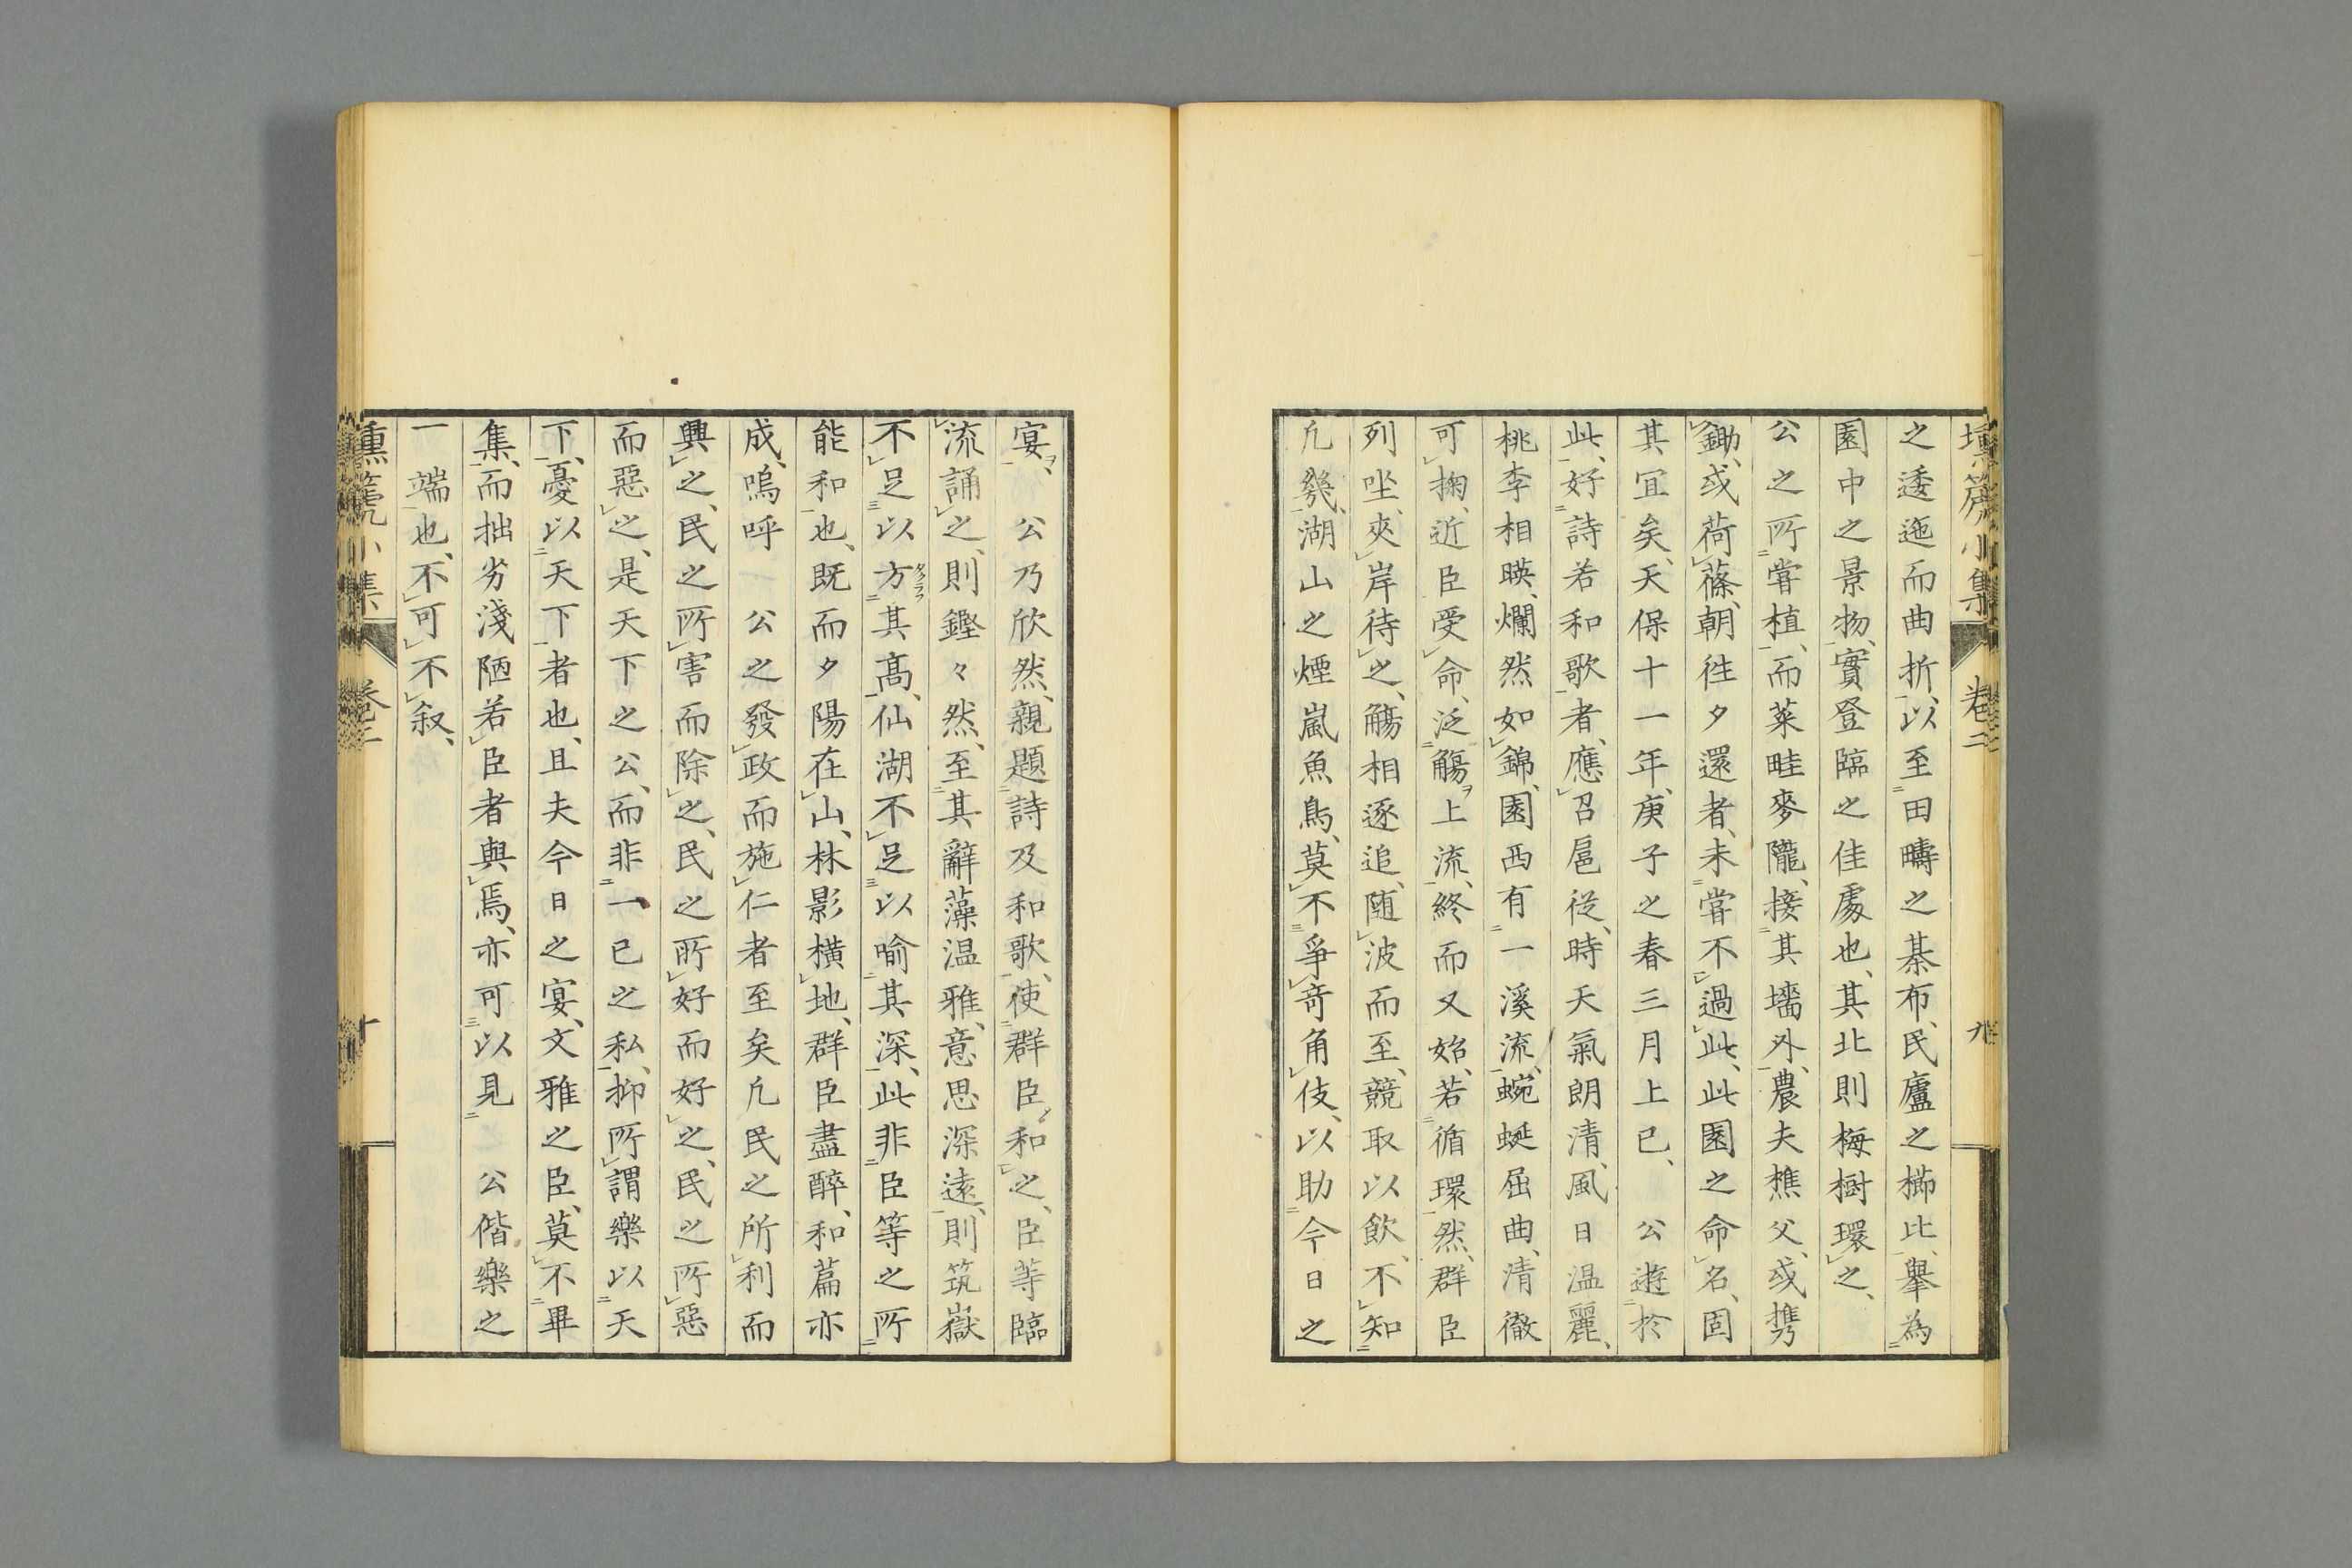 塤篪小集 卷二 九
之逶迤而曲折、以至田疇之棊布、民廬之櫛比、擧為
園中之景物、實登臨之佳處也、其北則梅樹環之、
公之所嘗植、而菜畦麥隴、接其墻外、農夫樵父、或携
鋤、或荷蓧、朝往夕還者、未嘗不過此、此園之命名、固
其宜矣、天保十一年、庚子之春三月上巳、 公遊於
此、好詩若和歌者、應召扈從、時天氣朗清、風日温麗、
桃李相暎、爛然如錦、園西有一溪流、蜿蜒屈曲、清徹
可掬、近臣受命、泛觴ヲ上流、終而又始、若循環然、群臣
列坐、夾岸待之、觴相逐追、随波而至、競取以飲、不知
凢幾、湖山之煙嵐魚鳥、莫不爭竒角伎、以助今日之
宴ヲ、 公乃欣然、親題詩及和歌、使群臣和之、臣等臨
流誦之、則鏗々然、至其辭藻温雅、意思深遠、則筑嶽
不足以方クラフ其髙、仙湖不足以喻其深、此非臣等之所
能和也、既而夕陽在山、林影横地、群臣盡醉、和篇亦
成、嗚呼 公之發政而施仁者至矣凢民之所利而
興之、民之所害而除之、民之所好而好之、民之所惡
而惡之、是天下之公、而非一己之私、抑所謂樂以天
下、憂以天下者也、且夫今日之宴、文雅之臣、莫不畢
集、而拙劣淺陋若臣者與焉、亦可以見 公偕樂之
一端也、不可不叙、
塤篪小集 卷二 十